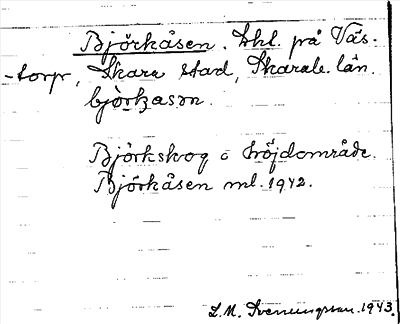 Björkåsen. Skl. på Väs-
-torp, Skara stad, Skarab. län.
bjòrkasɔn.
Björkskog o höjdområde.
Björkåsen ml. 1942.
L.M. Svenungsson. 1943.